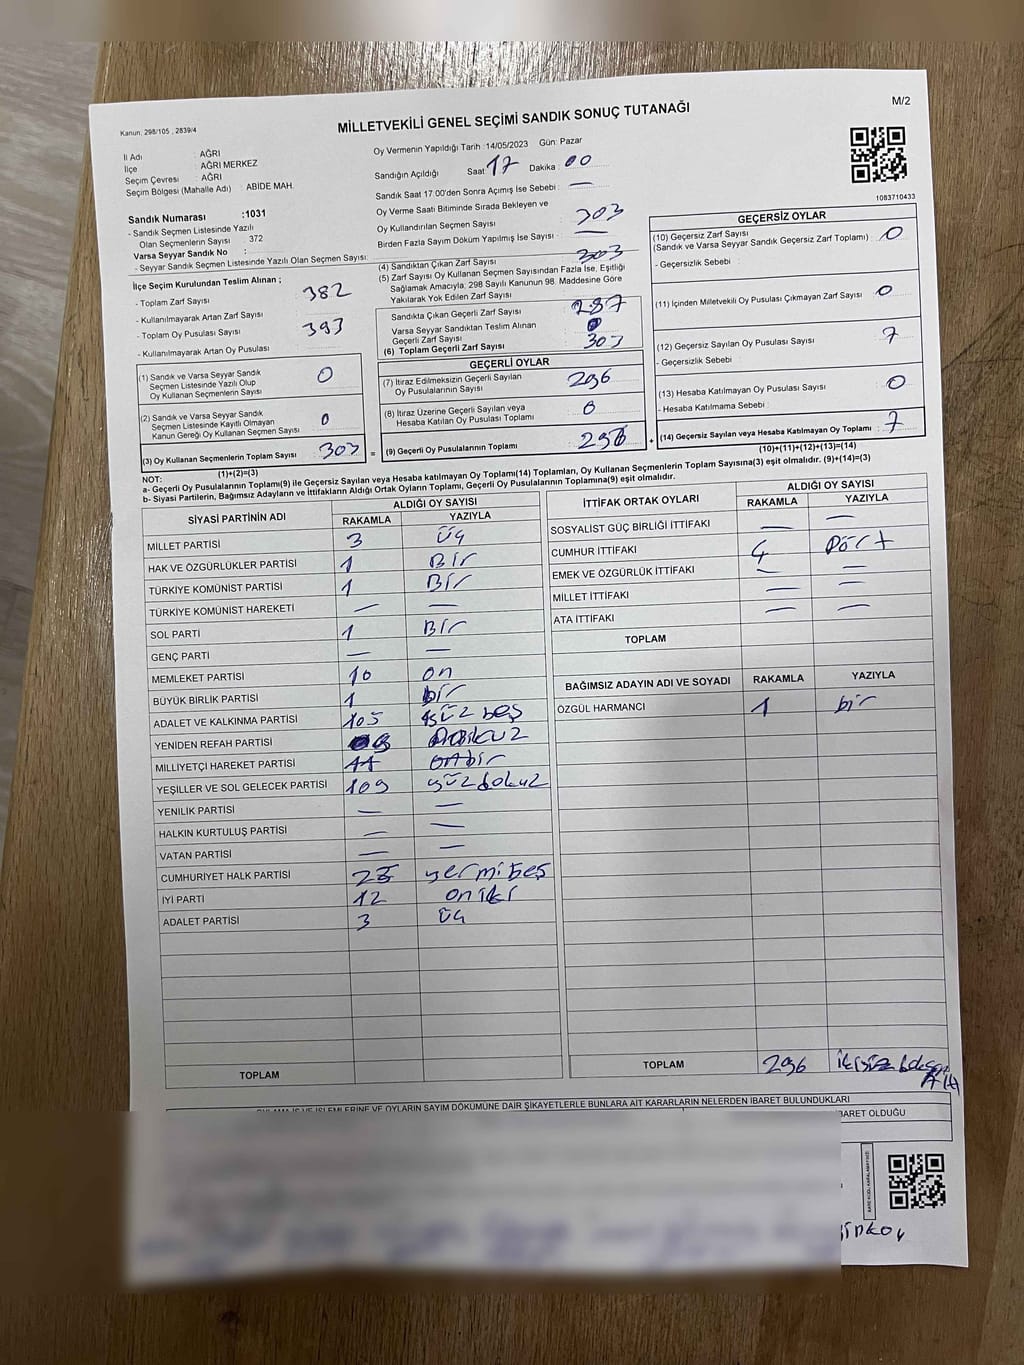 Kanun, 298/105 , 2839/4
MİLLETVEKİLİ GENEL SEÇİMİ SANDIK SONUÇ TUTANAĞI
M/2
İl Adı : AĞRI
İlçe : AĞRI MERKEZ
Seçim Çevresi : AĞRI
Seçim Bölgesi (Mahalle Adı) : ABİDE MAH.
Sandık Numarası :1031
- Sandık Seçmen Listesinde Yazılı
Olan Seçmenlerin Sayısı : 372
Varsa Seyyar Sandık No :
- Seyyar Sandık Seçmen Listesinde Yazılı Olan Seçmen Sayısı:
İlçe Seçim Kurulundan Teslim Alınan ;
- Toplam Zarf Sayısı : 382
- Kullanılmayarak Artan Zarf Sayısı :
- Toplam Oy Pusulası Sayısı : 393
- Kullanılmayarak Artan Oy Pusulası :
(1) Sandık ve Varsa Seyyar Sandık
Seçmen Listesinde Yazılı Olup
Oy Kullanan Seçmenlerin Sayısı 0
(2) Sandık ve Varsa Seyyar Sandık
Seçmen Listesinde Kayıtlı Olmayan
Kanun Gereği Oy Kullanan Seçmen Sayısı 0
(3) Oy Kullanan Seçmenlerin Toplam Sayısı 303 =
(1)+(2)=(3)
Oy Vermenin Yapıldığı Tarih :14/05/2023 Gün: Pazar
Sandığın Açıldığı Saat 17 Dakika : 00
Sandık Saat 17.00'den Sonra Açımış İse Sebebi : —
Oy Verme Saati Bitiminde Sırada Bekleyen ve
Oy Kullandırılan Seçmen Sayısı : 303
Birden Fazla Sayım Döküm Yapılmış İse Sayısı : —
(4) Sandıktan Çıkan Zarf Sayısı : 303
(5) Zarf Sayısı Oy Kullanan Seçmen Sayısından Fazla İse, Eşitliği
Sağlamak Amacıyla, 298 Sayılı Kanunun 98. Maddesine Göre
Yakılarak Yok Edilen Zarf Sayısı :
Sandıkta Çıkan Geçerli Zarf Sayısı : 287
Varsa Seyyar Sandıktan Teslim Alınan
Geçerli Zarf Sayısı :
(6) Toplam Geçerli Zarf Sayısı : 303
GEÇERLİ OYLAR
(7) İtiraz Edilmeksizin Geçerli Sayılan
Oy Pusulalarının Sayısı : 296
(8) İtiraz Üzerine Geçerli Sayılan veya
Hesaba Katılan Oy Pusulası Toplamı : 0
(9) Geçerli Oy Pusulalarının Toplamı : 296 +
1083710433
GEÇERSİZ OYLAR
(10) Geçersiz Zarf Sayısı : 0
(Sandık ve Varsa Seyyar Sandık Geçersiz Zarf Toplamı)
- Geçersizlik Sebebi :
(11) İçinden Milletvekili Oy Pusulası Çıkmayan Zarf Sayısı : 0
(12) Geçersiz Sayılan Oy Pusulası Sayısı : 7
- Geçersizlik Sebebi
(13) Hesaba Katılmayan Oy Pusulası Sayısı : 0
- Hesaba Katılmama Sebebi :
(14) Geçersiz Sayılan veya Hesaba Katılmayan Oy Toplamı : 7
(10)+(11)+(12)+(13)=(14)
NOT:
a- Geçerli Oy Pusulalarının Toplamı(9) ile Geçersiz Sayılan veya Hesaba Katılmayan Oy Toplamı(14) Toplamları, Oy Kullanan Seçmenlerin Toplam Sayısına(3) eşit olmalıdır. (9)+(14)=(3)
b- Siyasi Partilerin, Bağımsız Adayların ve İttifakların Aldığı Ortak Oyların Toplamı, Geçerli Oy Pusulalarının Toplamına(9) eşit olmalıdır.
SİYASİ PARTİNİN ADI ALDIĞI OY SAYISI
RAKAMLA YAZIYLA
MİLLET PARTİSİ 3 üç
HAK VE ÖZGÜRLÜKLER PARTİSİ 1 Bir
TÜRKİYE KOMÜNİST PARTİSİ 1 Bir
TÜRKİYE KOMÜNİST HAREKETİ — —
SOL PARTİ 1 Bir
GENÇ PARTİ — —
MEMLEKET PARTİSİ 10 on
BÜYÜK BİRLİK PARTİSİ 1 bir
ADALET VE KALKINMA PARTİSİ 105 yüz beş
YENİDEN REFAH PARTİSİ
MİLLİYETÇİ HAREKET PARTİSİ 11 onbir
YEŞİLLER VE SOL GELECEK PARTİSİ 109 yüzdokuz
YENİLİK PARTİSİ — —
HALKIN KURTULUŞ PARTİSİ — —
VATAN PARTİSİ — —
CUMHURİYET HALK PARTİSİ 25 yermibeş
İYİ PARTİ 12 oniki
ADALET PARTİSİ 3 üç
TOPLAM
İTTİFAK ORTAK OYLARI ALDIĞI OY SAYISI
RAKAMLA YAZIYLA
SOSYALİST GÜÇ BİRLİĞİ İTTİFAKI — —
CUMHUR İTTİFAKI 4 Dört
EMEK VE ÖZGÜRLÜK İTTİFAKI — —
MİLLET İTTİFAKI — —
ATA İTTİFAKI — —
TOPLAM
BAĞIMSIZ ADAYIN ADI VE SOYADI RAKAMLA YAZIYLA
ÖZGÜL HARMANCI 1 bir
TOPLAM 296
OYLAMA İŞ VE İŞLEMLERİNE VE OYLARIN SAYIM DÖKÜMÜNE DAİR ŞİKAYETLERLE BUNLARA AİT KARARLARIN NELERDEN İBARET BULUNDUKLARI
İBARET OLDUĞU